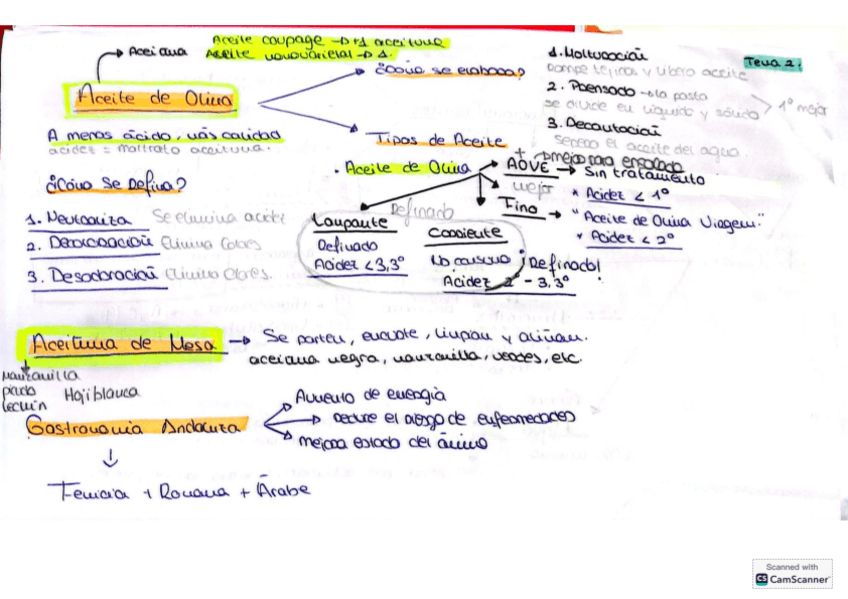 Aceite coupage → +1 aceituna
Aceite monovarietal → 1.
→ Aceiana
Aceite de Oliva
A menos ácido, más calidad
acidez = maltrato aceituna.
¿Cómo se Refina?
1. Neutraliza Se elimina acidez
2. Decoloración Elimina Colores
3. Desodoración Elimina Olores.
Tema 2.
¿Cómo se elabora?
1. Molturación
rompe tejidos y libra aceite
2. Prensado → la pasta
se divide en líquido y sólido
> 1º mejor
3. Decantación
separa el aceite del agua.
Tipos de Aceite
· Aceite de Oliva
AOVE → Sin tratamiento
+ mejor para ensalada
* Acidez < 1º
mejor
Fino → "Aceite de Oliva Virgen."
* Acidez < 2º
Refinado
Lampante
Refinado
Acidez < 3,3º
Corriente
No consumo
¡Refinado!
Acidez 2º - 3.3º
Aceituna de Mesa → Se parten, encurte, limpian y aliñan.
aceiana negra, manzanilla, verdes, etc.
Manzanilla
picudo
lechín
Hojiblanca
Gastronomía Andaluza
Aumento de energía
reduce el riesgo de enfermedades
mejora estado del ánimo
Fenicia + Romana + Árabe
Scanned with
CS CamScanner